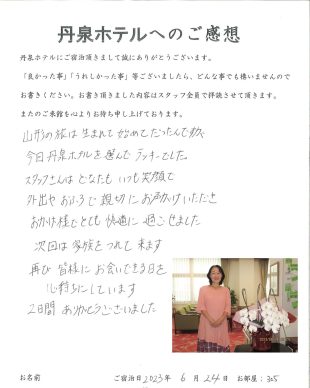 丹泉ホテルへのご感想
丹泉ホテルにご宿泊頂きまして誠にありがとうございます。
「良かった事」「うれしかった事」等ございましたら、どんな事でも構いませんので
お書きください。お書き頂きました内容はスタッフ全員で拝読させて頂きます。
またのご来館を心よりお待ち申し上げております。
山形の旅は生まれて始めてだったんですが
今日丹泉ホテルを選んでラッキーでした。
スタッフさんはどなたもいつも笑顔で
外出やおふろで親切にお声かけいただき
おかげ様でとても快適に過ごせました
次回は家族をつれて来ます
再び皆様にお会いできる日を
心待ちにしています
2日間ありがとうございました
お名前
ご宿泊日 2023年 6月 24日 お部屋：305